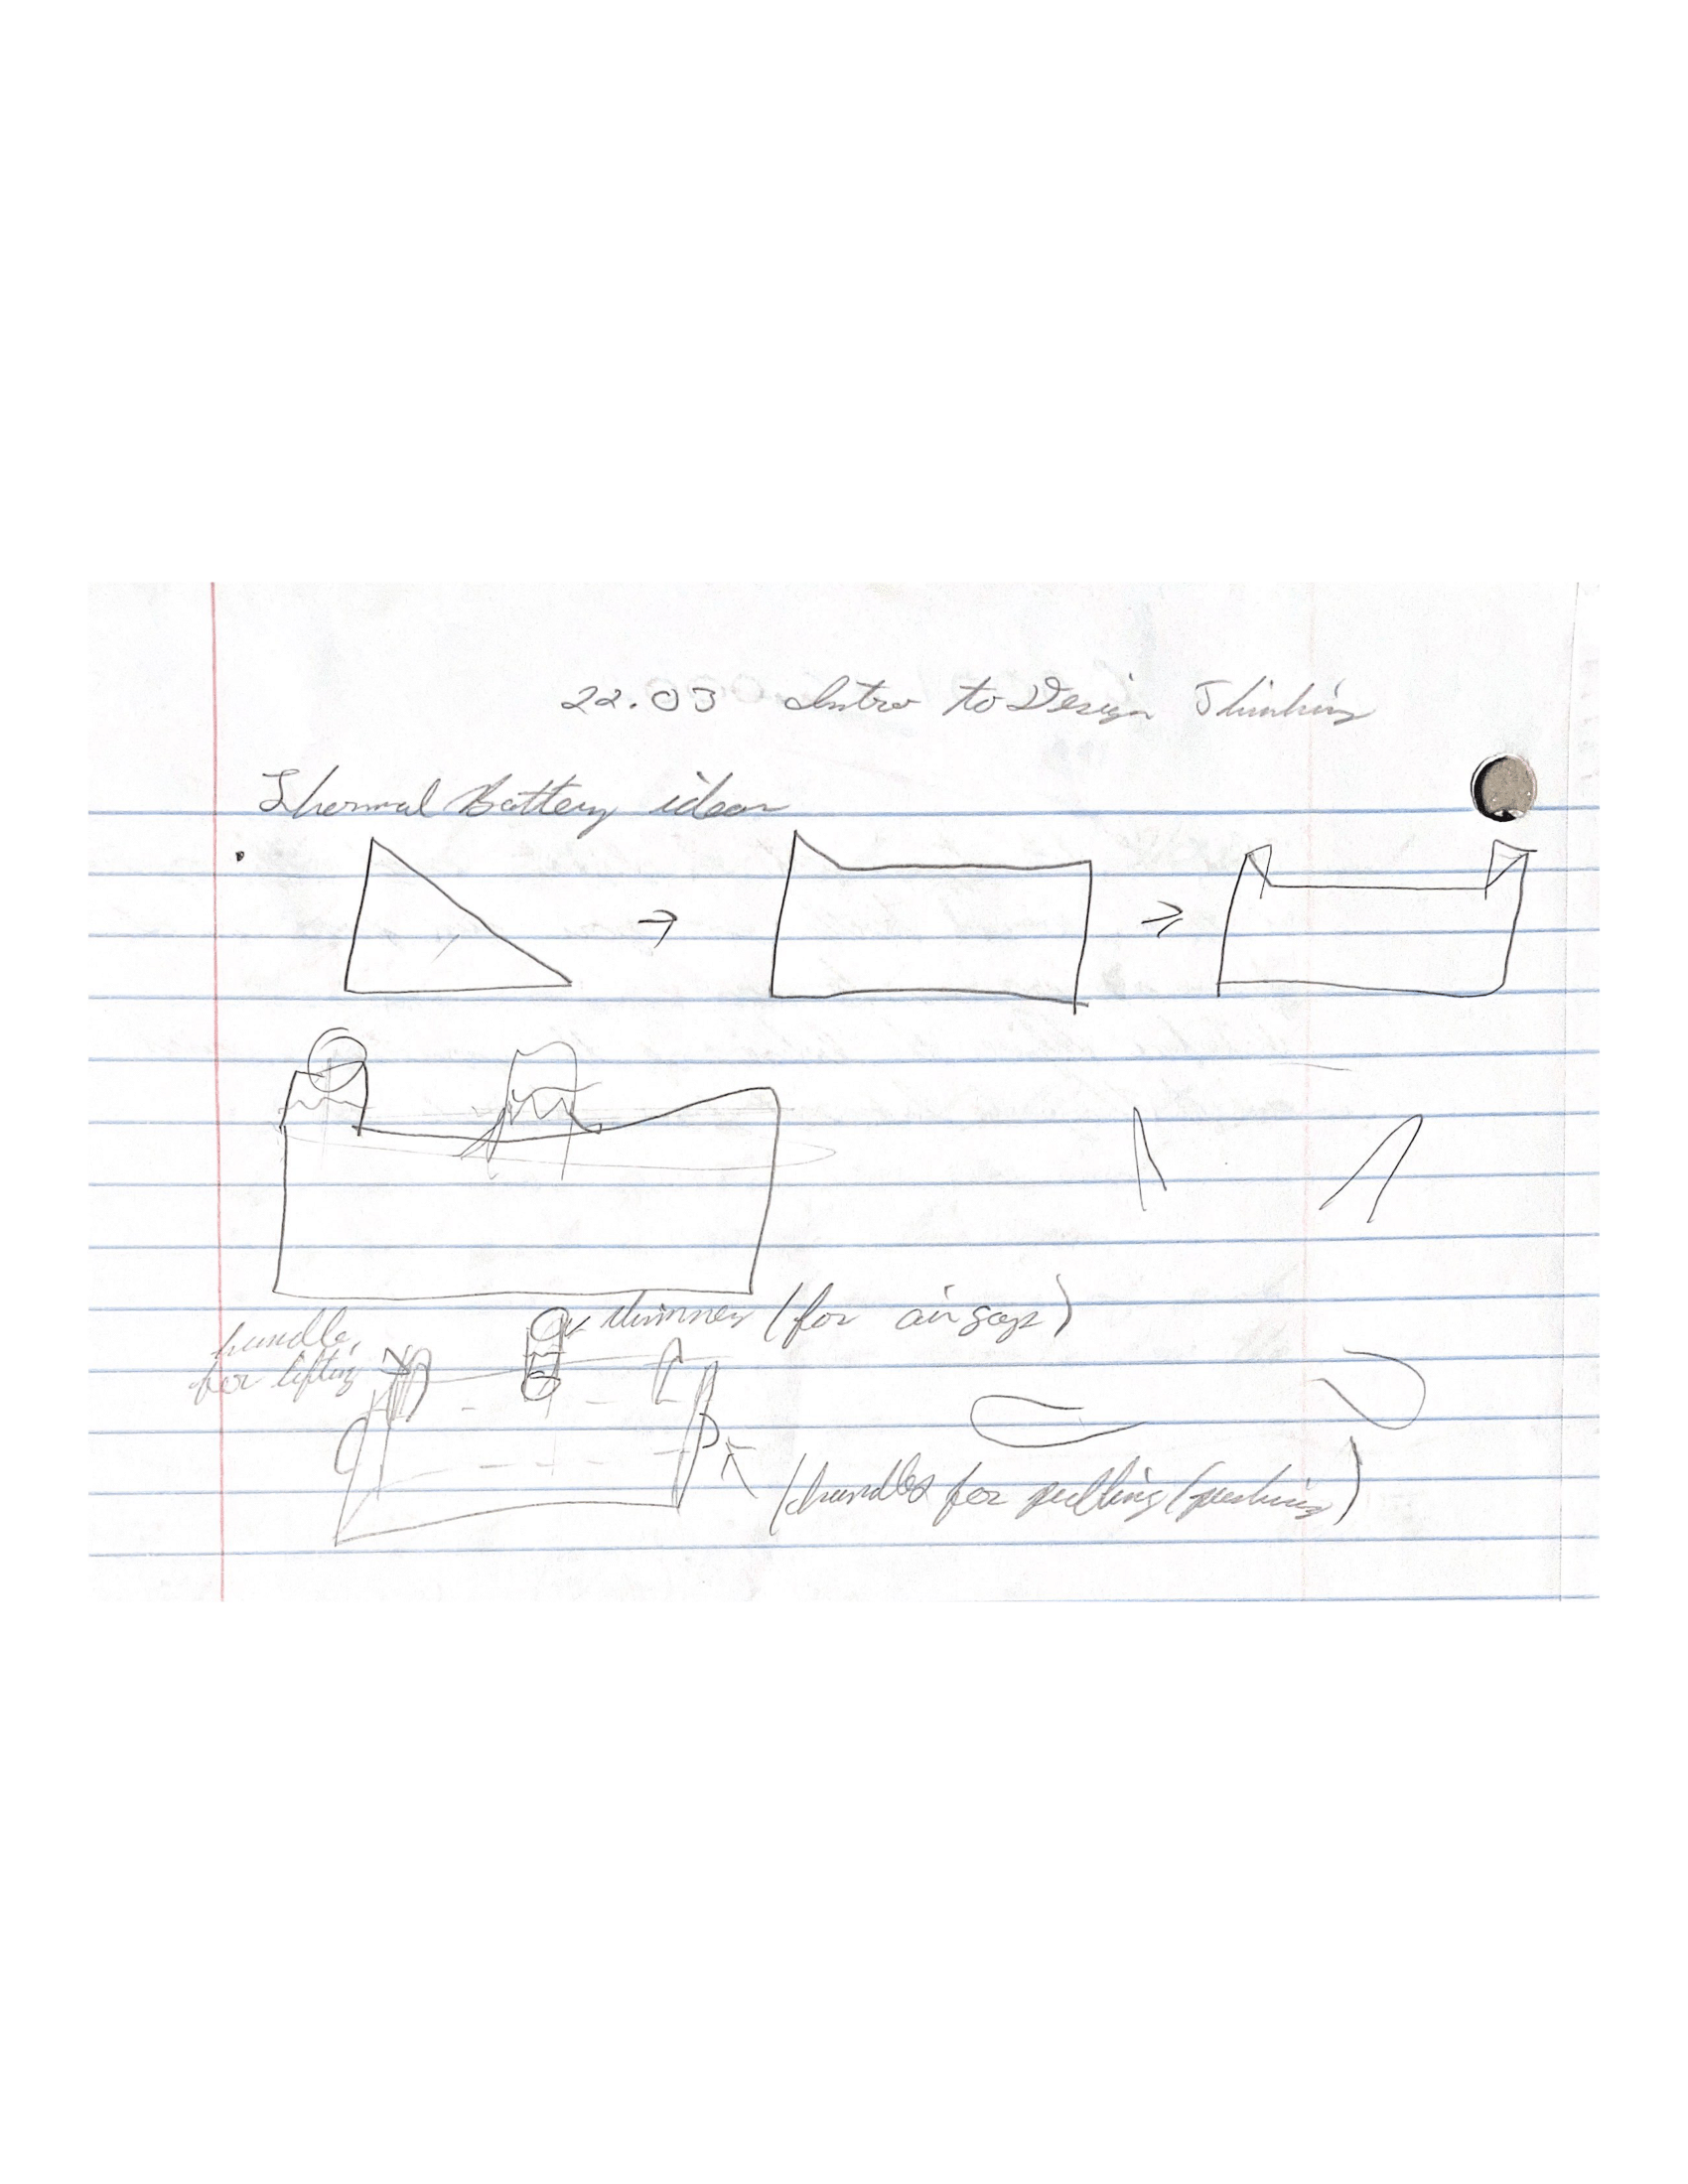 22.03 Intro to Design Thinking
Thermal Battery ideas
chimney (for air gaps)
handle
for lifting
(handles for pulling/pushing)